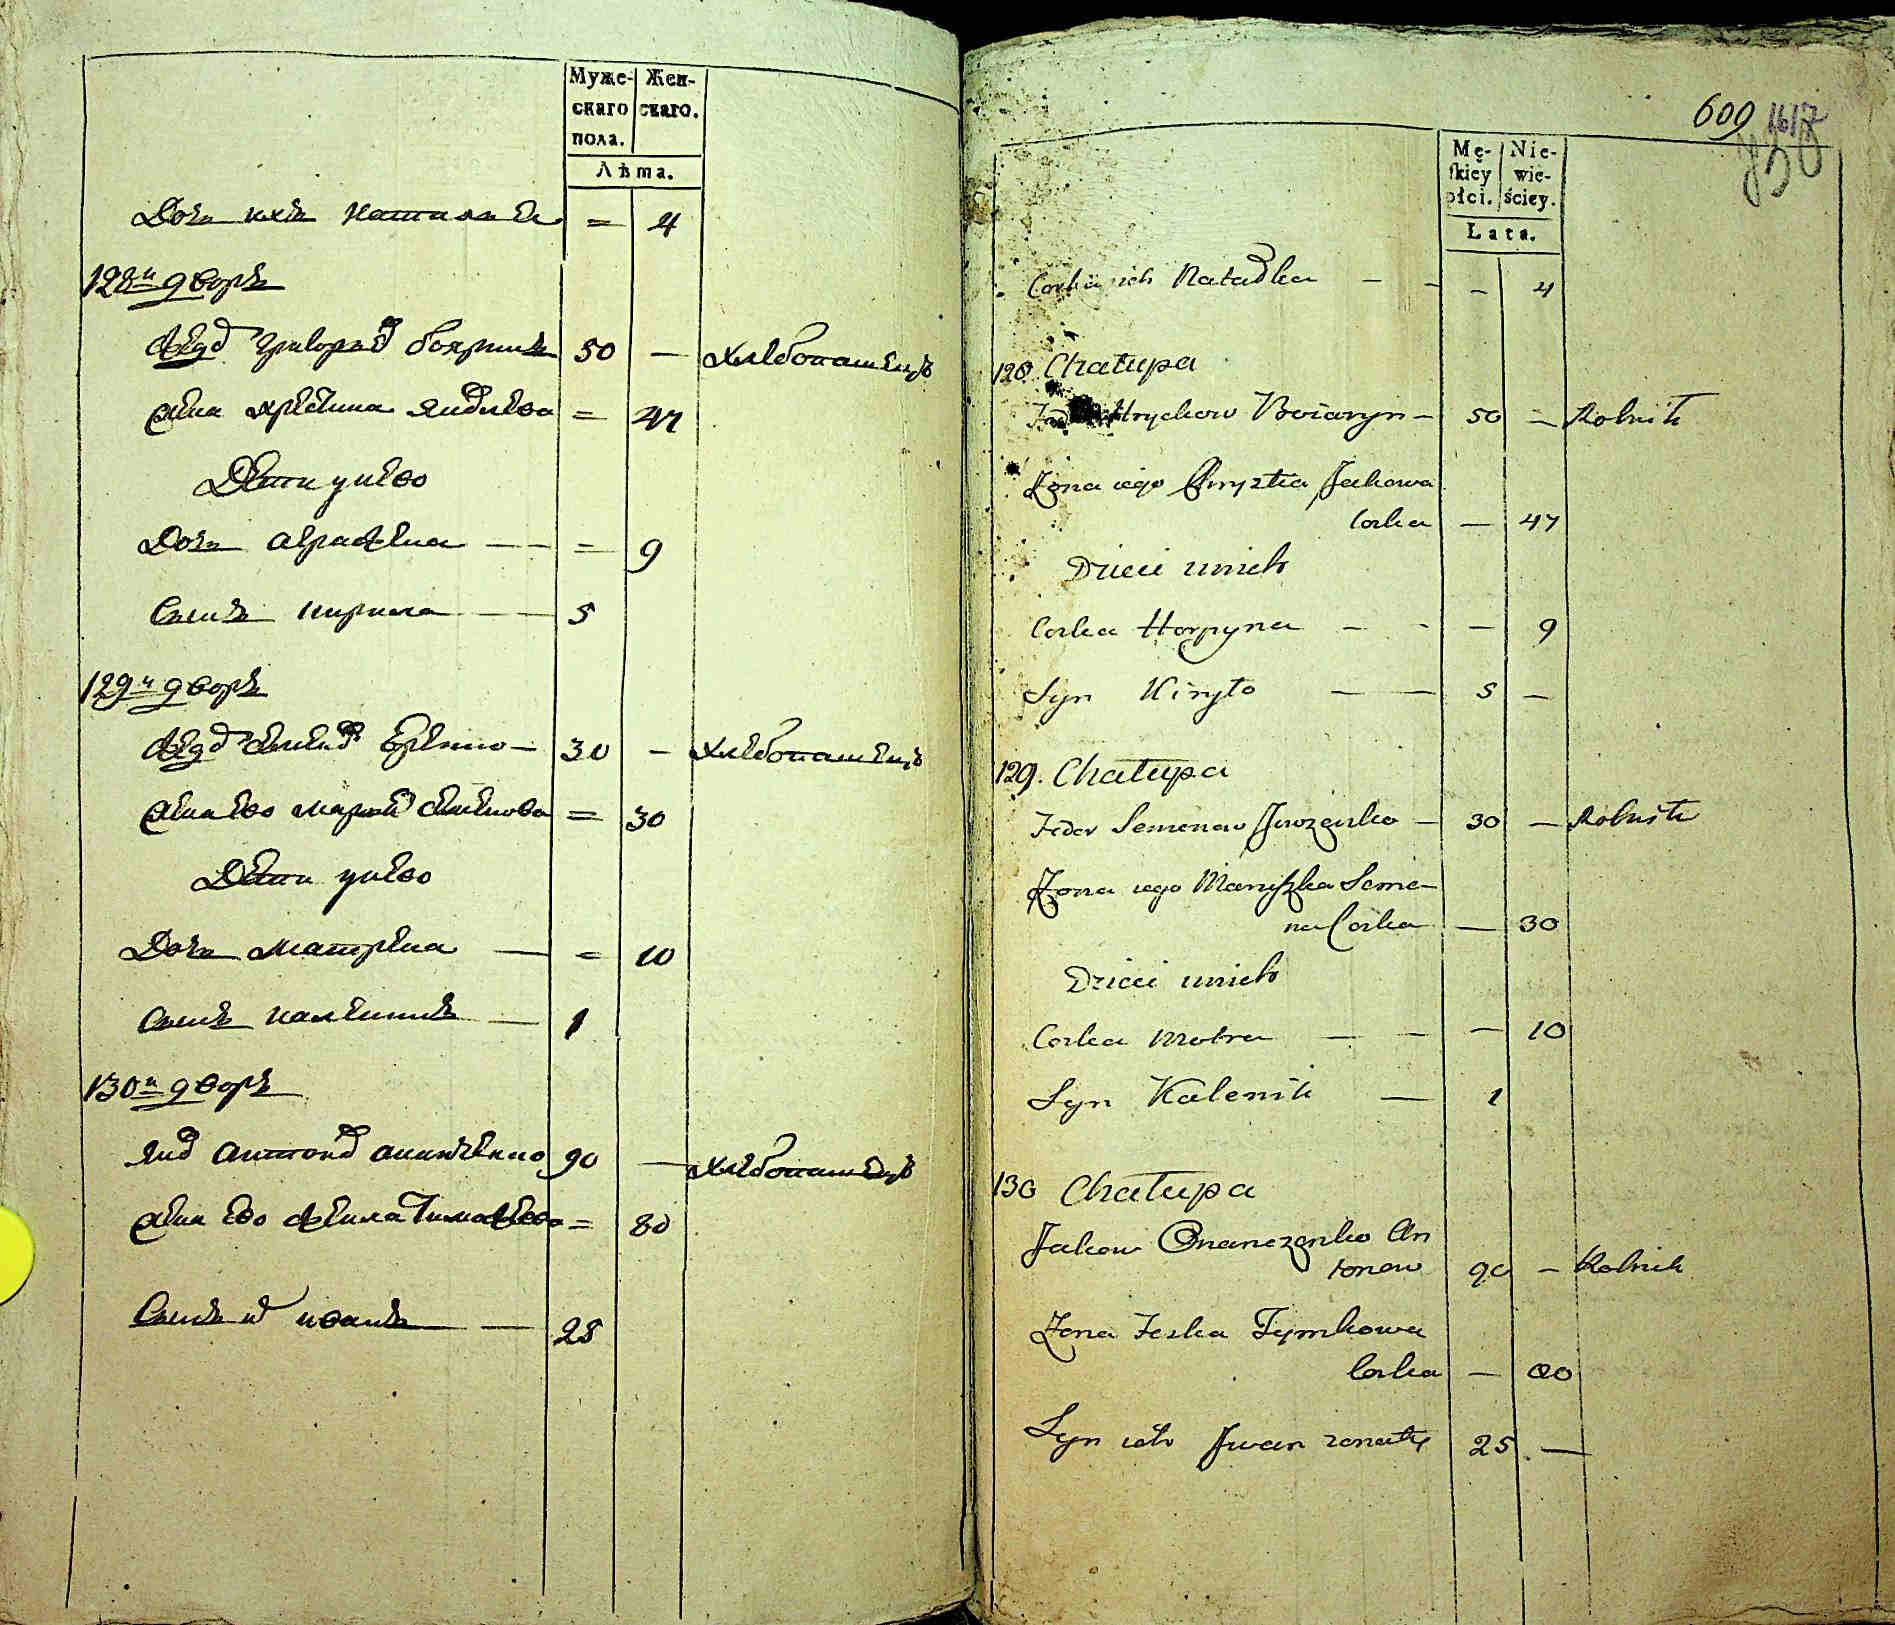 Муже- Жен-
скаго скаго.
пола.
Лѣта.
Дочь ихъ наталья = 4
128й дворъ
Федоръ григорьевъ бояринъ 50 — хлебопашецъ
жена христина яковлева = 47
Дети у нево
Дочь аграфена — — = 9
Сынъ кирила — 5
129й дворъ
Федоръ семеновъ — 30 — хлебопашецъ
жена ево марья семенова = 30
Дети у нево
Дочь матрена — = 10
Сынъ калениикъ — 1
130й дворъ
яковъ антоновъ 90 — хлебопашецъ
жена ево фекла тимофеева = 80
Сынъ иванъ — 25
609 1617
Mę- Nie-
skiey wie-
płci. ściey.
Lata.
Corka ich Natałka — - - 4
128 Chałupa
Hryckow Boiaryn — 50 — Rolnik
Żona iego Chrystia Jakowa
Corka — 47
Dzieci u nich
Corka Horpyna — - — 9
Syn Kiryło — — 5 —
129. Chałupa
Fedor Semenow — 30 — Rolnik
Żona iego Maryszka Seme-
na Corka — 30
Dzieci u nich
Corka Motra — — — 10
Syn Kalenik — 1
130 Chałupa
Jakow Onanczenko An
tonow 90 — Rolnik
Żona Feska Tymkowa
Corka — 80
Syn ich Jwan żonaty 25 —